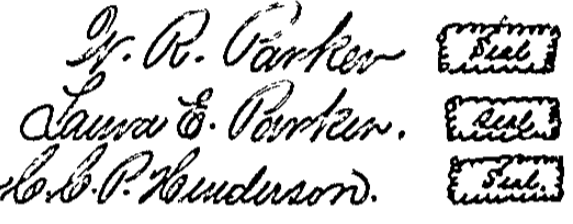 W. R. Parker Seal
Laura E. Parker. Seal
C. C. P. Henderson. Seal.